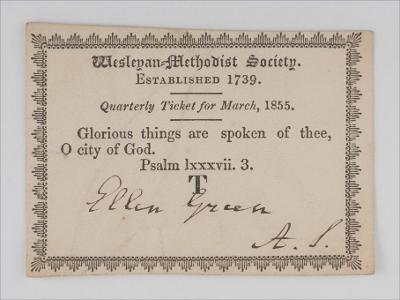 Wesleyan-Methodist Society.
ESTABLISHED 1739.
Quarterly Ticket for March, 1855.
Glorious things are spoken of thee,
O city of God.
Psalm lxxxvii. 3.
T
Ellen Green
A. S.